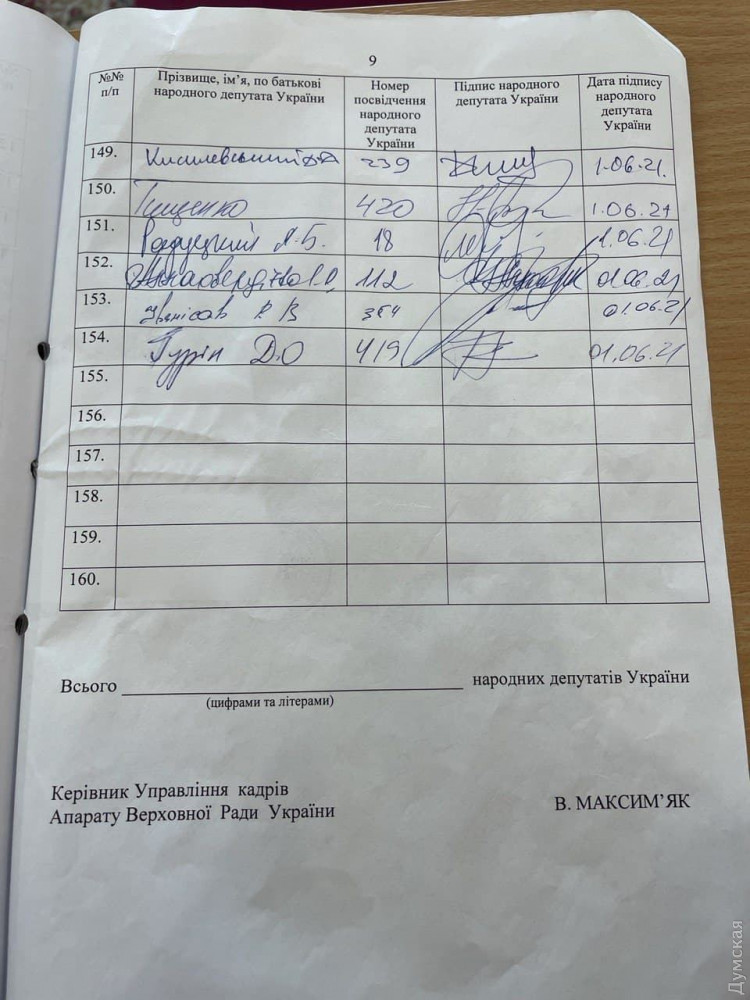 9
№№ Прізвище, ім’я, по батькові Номер Підпис народного Дата підпису
п/п народного депутата України посвідчення депутата України народного
народного депутата
депутата України
України
149. Кисилевський 239 1.06.21.
150. Тищенко 420 1.06.21
151. Радуцький М.Б. 18 1.06.21
152. 112 01.06.21
153. Р В 354 01.06.21
154. Гурін Д.О 419 01.06.21
155.
156.
157.
158.
159.
160.
Всього народних депутатів України
(цифрами та літерами)
Керівник Управління кадрів
Апарату Верховної Ради України В. МАКСИМ’ЯК
Думская